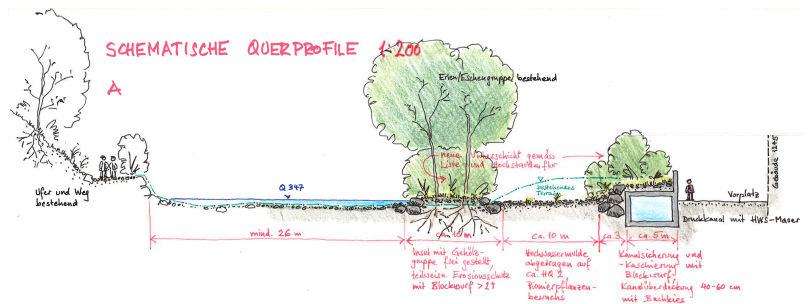 SCHEMATISCHE QUERPROFILE 1:200
A
Erlen/Eschengruppe bestehend
neue Unterschicht gemäss
Liste und Hochstaudenflur
bestehendes
Terrain
Q 347
Ufer und Weg
bestehend
Gebäude 1245
Vorplatz
Druckkanal mit HWS-Mauer
mind. 26 m
ca. 10 m
ca. 10 m
ca. 3
ca. 5 m
Insel mit Gehölz-
gruppe frei gestellt,
teilweise Erosionsschutz
mit Blockwurf > 2t
Hochwassermulde
abgetragen auf
ca. HQ 1,
Pionierpflanzen-
bewuchs
Kanalsicherung und
-Kaschierung mit
Blockwurf.
Kanalüberdeckung 40-60 cm
mit Bachkies